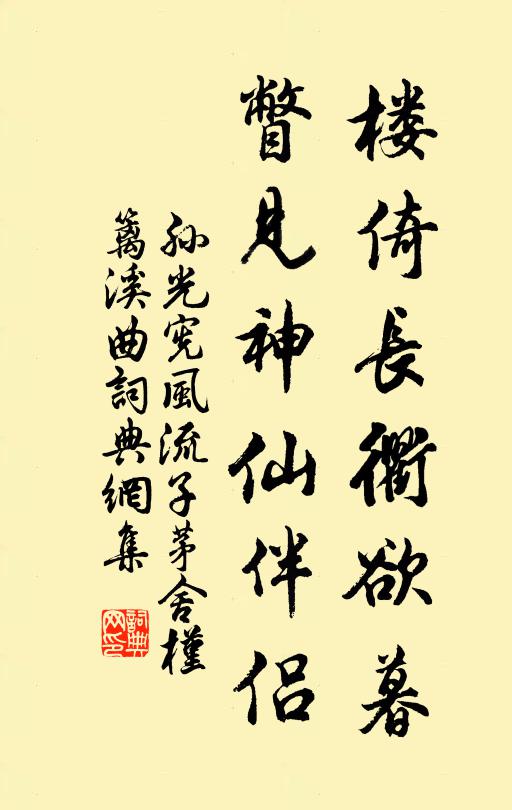 楼倚長衢欲暮
瞥見神仙伴侶
孙光宪風流子茅舍槿
篱溪曲詞典網集
詞典网印